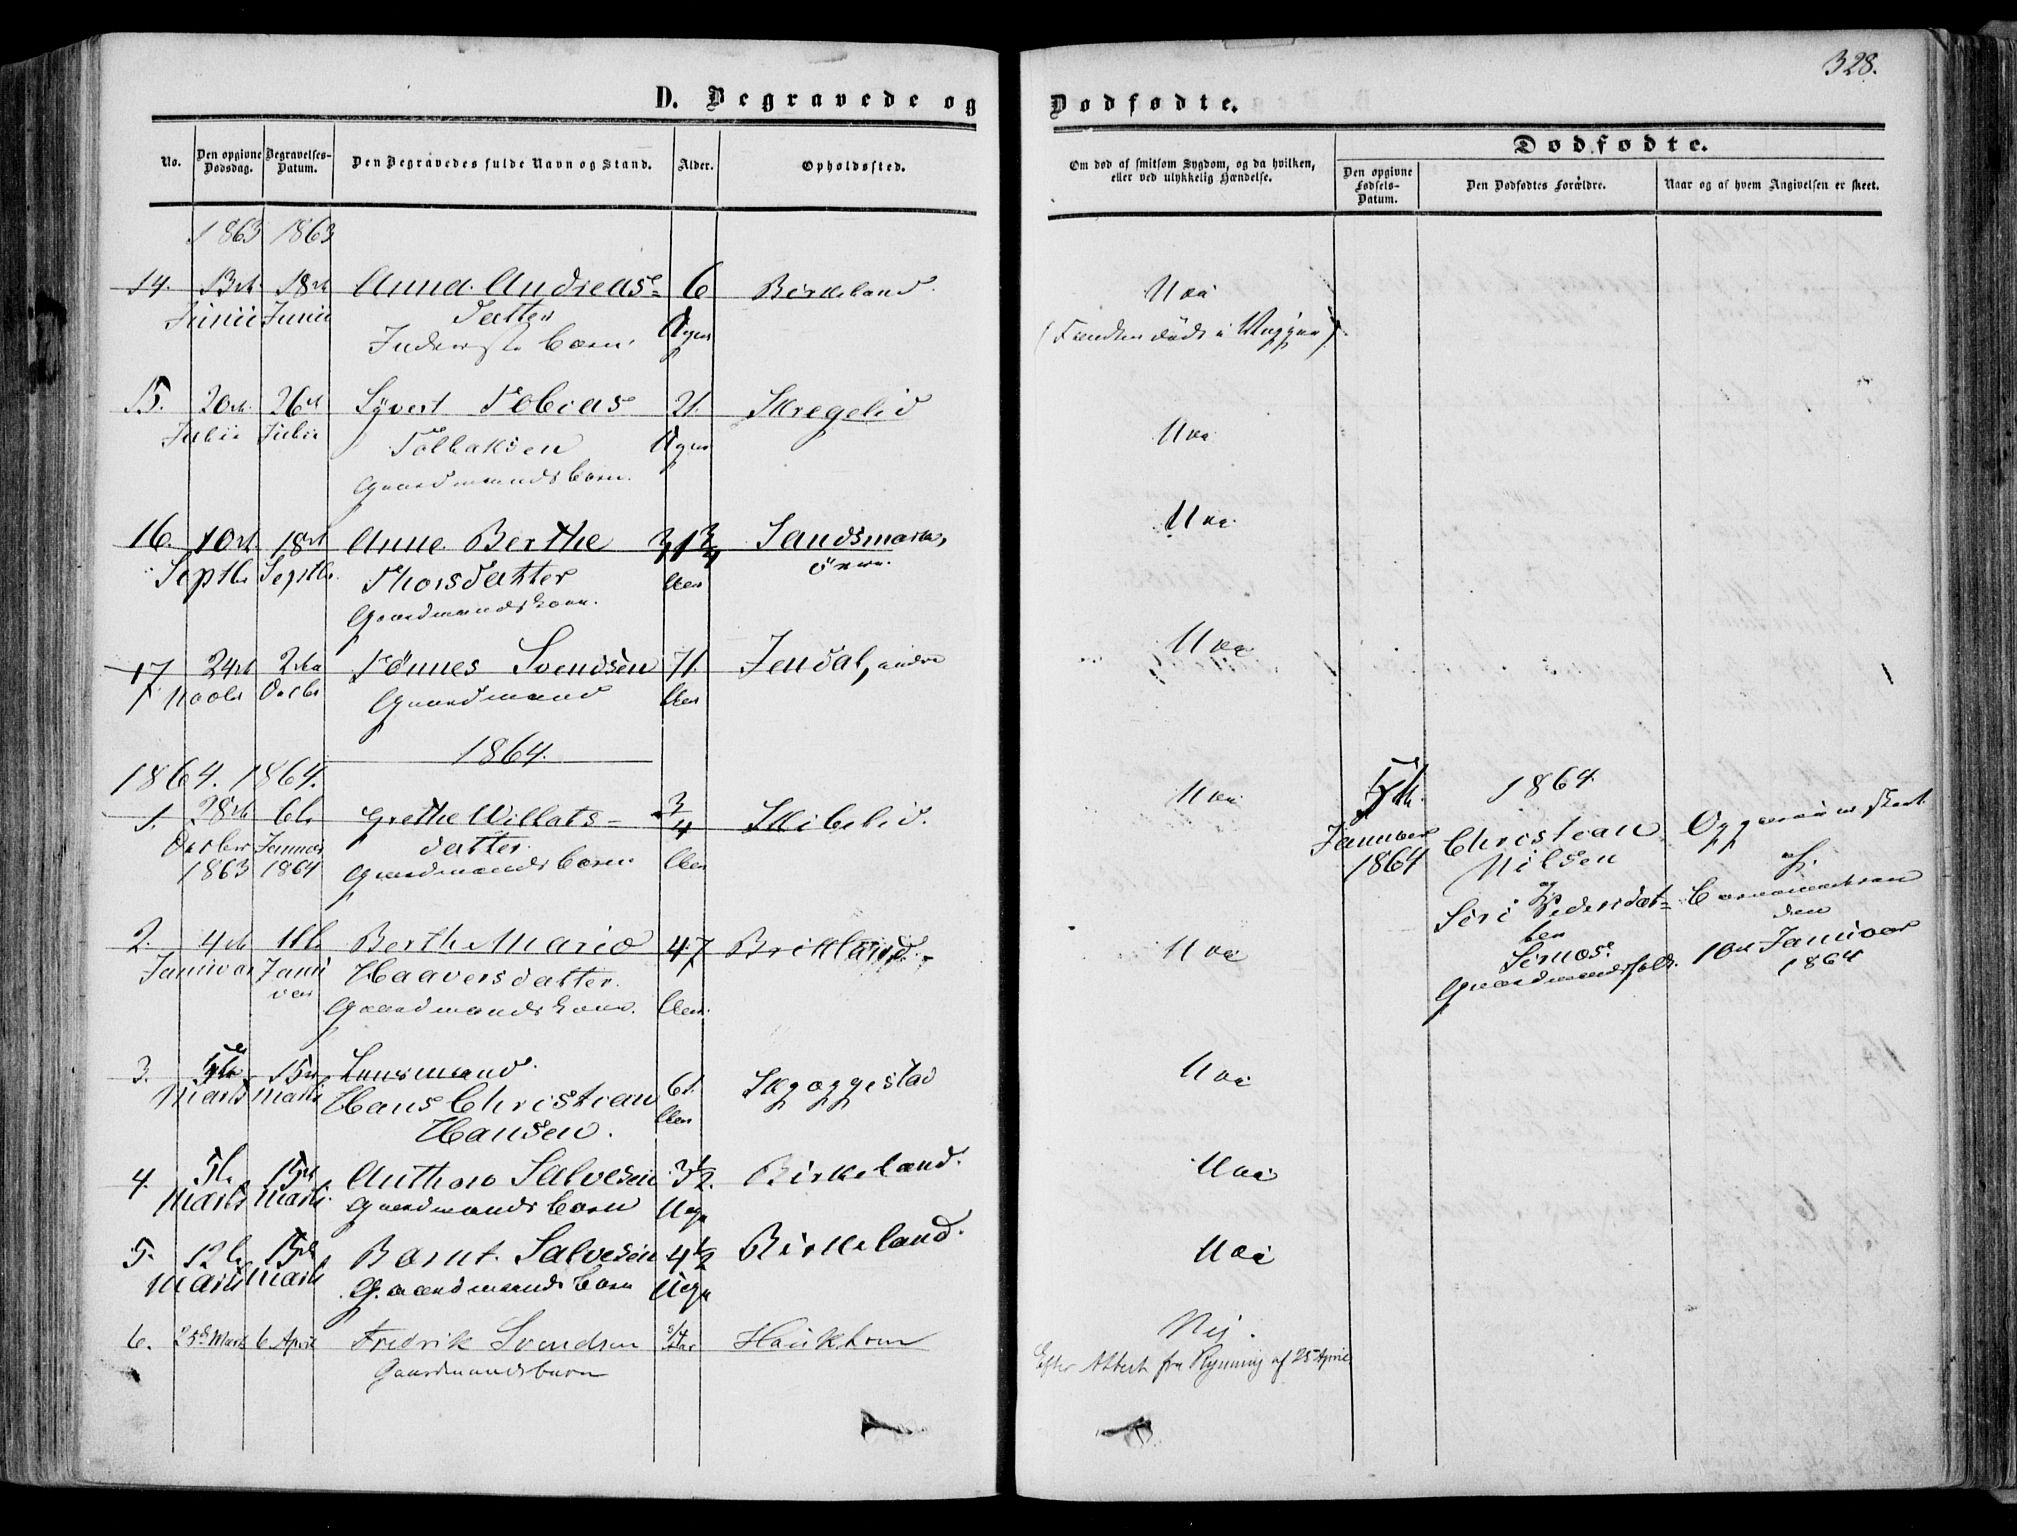 328.
D. Begravede og Dødfødte.
No.
Den opgivne Dødsdag.
Begravelses-Datum.
Den Begravedes fulde Navn og Stand.
Alder.
Opholdssted.
Om død af smitsom Sygdom, og da hvilken, eller ved ulykkelig Hændelse.
Dødfødte.
Den opgivne Fødsels-Datum.
Den Dødfødtes Forældre.
Naar og af hvem Angivelsen er skeet.
1863 1863
14. 13de 18de Anna Andreas= 6 Birkeland.
Junii Junii Datter Uger
Børn.
15. 20de 26de Syvert Tobias 21. Skregelid
Julii Julii Uger
Gaardmandsbørn.
16. 10de 18de Anne Berthe Sandsmark,
Septbr Septbr. Thorsdatter Aar øvre.
Gaardmandskone.
17 24de 2den Tönnes Svendsen 71. Jendal,
Novbr Decbr Gaardmand Aar
1864.
1864. 1864.
1. 28de 6te Grethe Willats- 3/4 Skibelid.
Decbr Januar datter Aar
1863 1864 Gaardmandsbørn
2. 4de 11te Berthe Marie 47 Birkeland.
Januar Janu
var Haaversdatter.
Gaardmandskone. Aar.
3. 5te 15de Lensmand.
Marts Marts Hans Christian 61. Skoggestad
Hansen. Aar
4. 5te 15de Anthon Salvesen 3½ Birkeland.
Marts Marts. Gaardmandsbørn Uge
5. 12te 15de Bernt Salvesen 4½ Birkeland.
Marts Marts Gaardmandsbørn Uge
6. 25de Marts 6 April Fredrik Svendsen 5/4 Aar Haukhom
Gaardmandsbarn
Nei
(Fandtes død i Vuggen)
Nei
Nei
Nei
Nei
Nei
Nei
Nei
Nei
Nej.
Efter Attest fra Rynning af 25 April
5te
Januar
1864
1864
Christian
Nilsen
og
Siri Pedersdat=
ter
Sirnæs.
Gaardmandsfolk.
Opgaven er skeet
af
Barnemoderen
den
10de Januar
1864